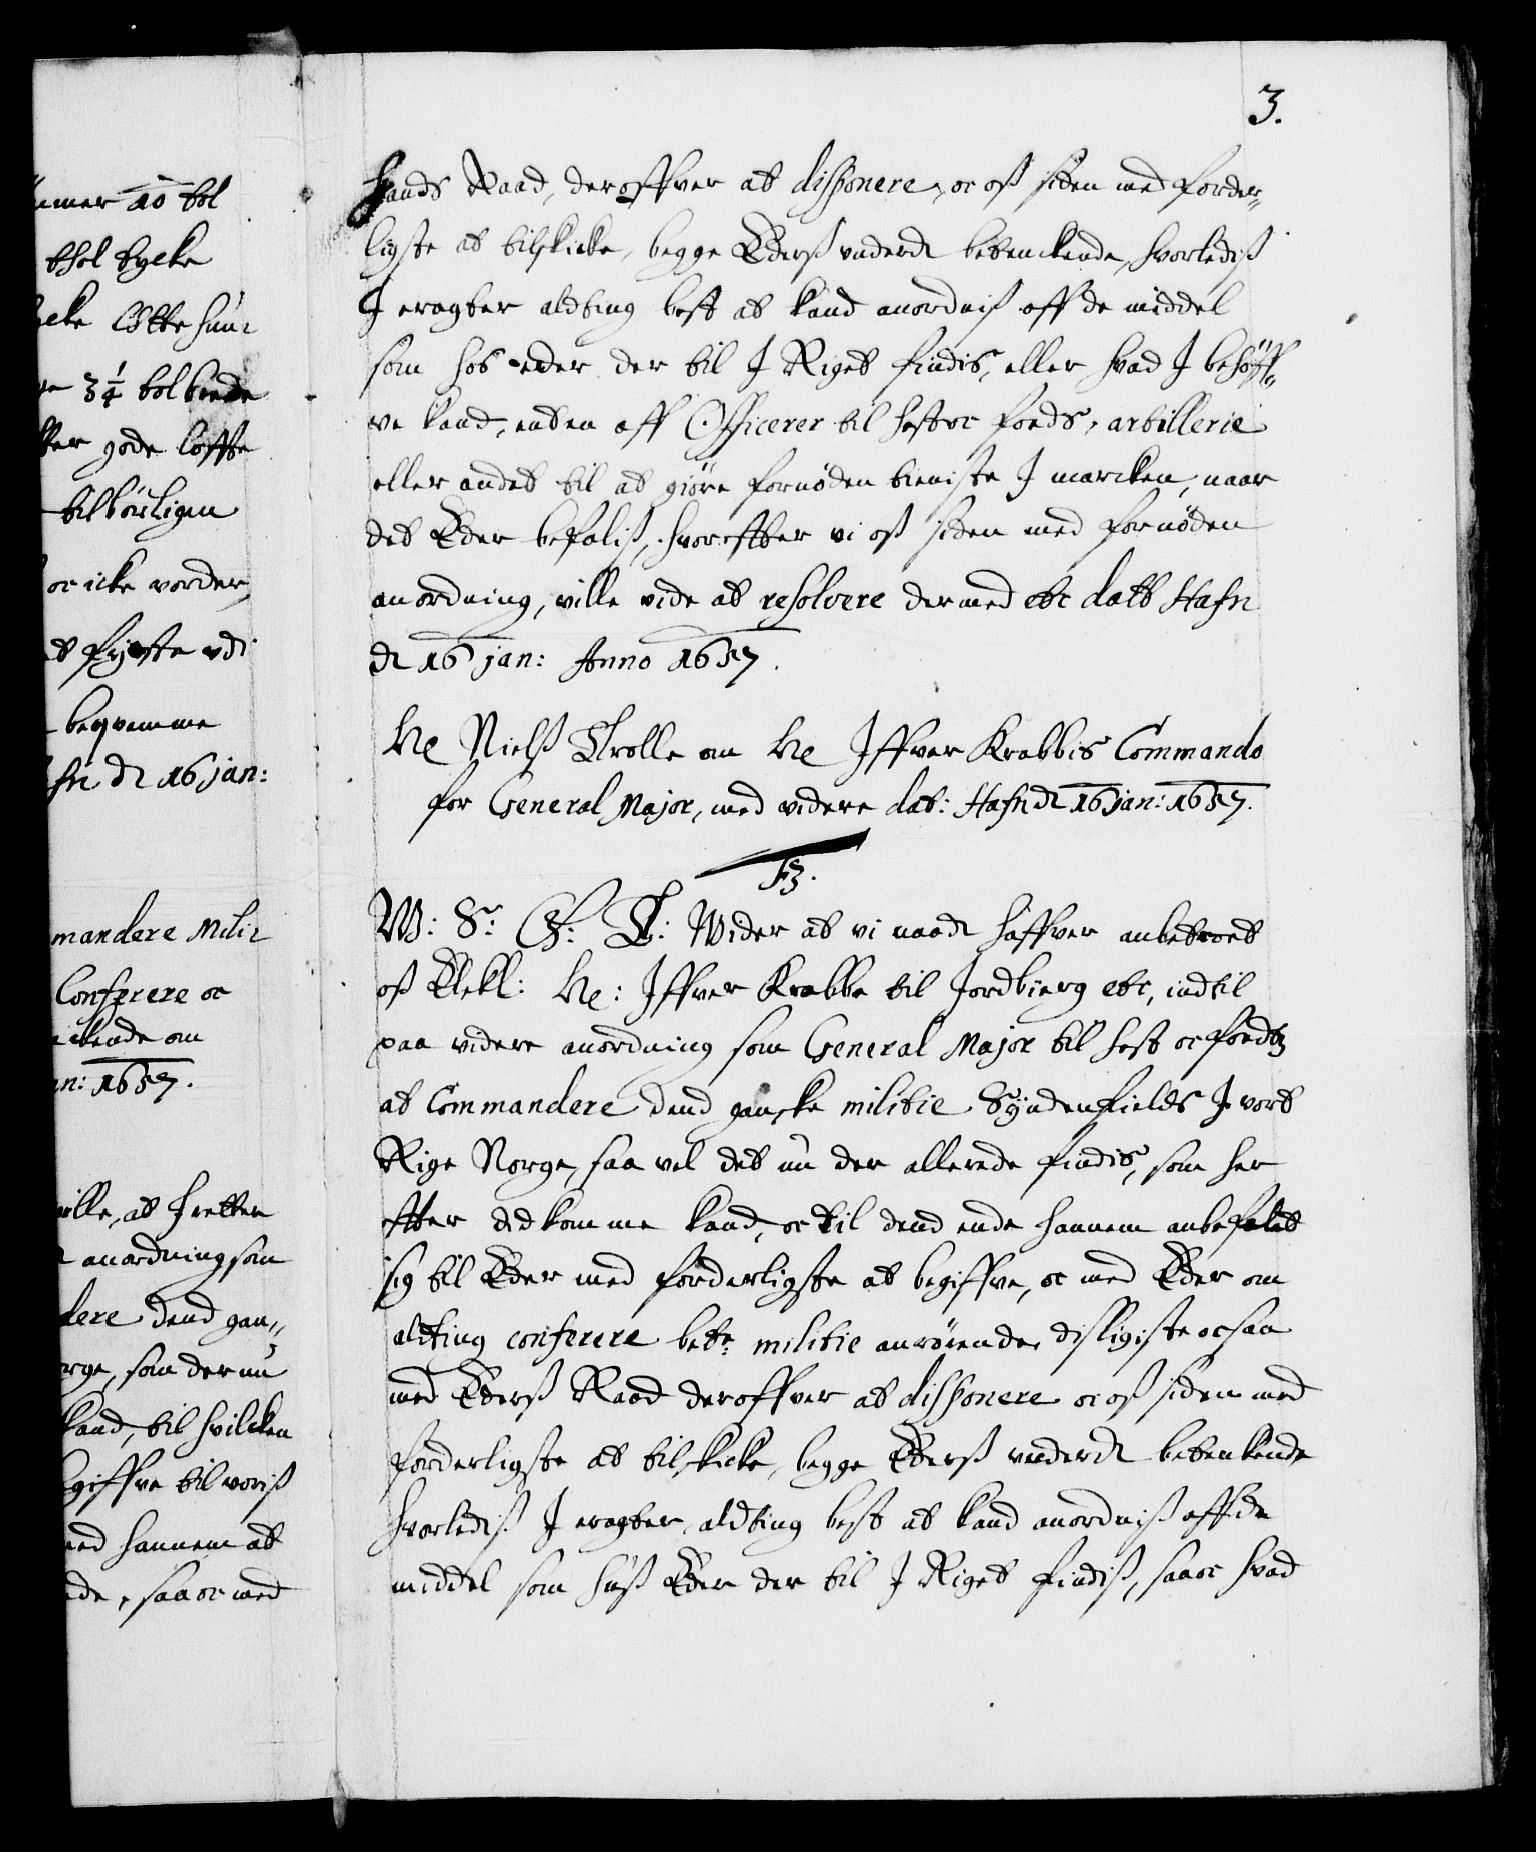 3.
hands Raad, deroffver at disponere, oc oß siden med forder„
ligste at tilskicke, begge Eders underd betenckende, hvorlediß
I eragter alting best at kand anordniß aff de middel
som hos eder der til I Riget findis, eller hvad I behöff„
ve kand, enten aff Officerer til hest oc foeds, artillerie
eller andet til at giöre fornøden tieniste I marcken, naar
det Eder befaliß, hvorefter vi oß siden med fornøden
anordning, ville vide at resolvere dermed etc datt Hafn
d 16 jan: Anno 1657.
He Nielß Trolle om He Iffver Krabbis Commando
for General Major, med videre dat: Hafn d 16 jan: 1657.
F3.
W: S: G: T: Wider at vi naad haffver anbetroet
oß Elskl: He: Iffver Krabbe til Jordbierg etc, indtil
paa videre anordning som General Major til hest oc foedß
at Commandere dend gandske militie Syndenfields I vort
Rige Norge, saa vel det nu der allerede findis, som her
efter did komme kand, oc til dend ende hannem anbefalet
sig til Eder med forderligste at begiffve, oc med Eder om
alting conferere bete militie anrörende, disligiste ocsaa
med Eders Raad deroffver at disponere oc oß siden med
forderligste at tilskicke, begge Eders underd betenkende
hvorlediß I eragter, alting best at kand anordniß aff de
middel som huß Eder der til I Riget findiß, saa oc hvad
ummer 10 tol
thol tycke
3¼ tol brede
gode löffte
tilbörligen
oc icke vorder
fryste udi
beqvemme
fn d 16 jan:
mandere Mili
Conferere oc
ckende om
an: 1657.
ville, at I retter
anordning som
dere dend gan„
orge, som der nu
kand, til hvilcken
egiffve til voriß
med hannem at
ende, saa oc med